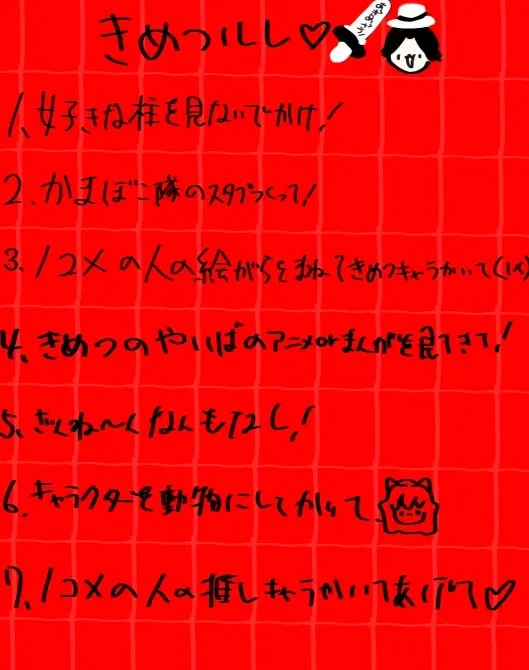 きめつルレ♡
1、好きな柱を見ないでかけ!
2.かまぼこ隊のスタプつくって!
3.1コメの人の絵がらをまねてきめつキャラかいて(1人)
4、きめつのやいばのアニメorまんがを見てきて!
5、ざんね〜んなんもなし!
6.キャラクターを動物にしてかいて
7、1コメの人の推しキャラかいてあげて♡